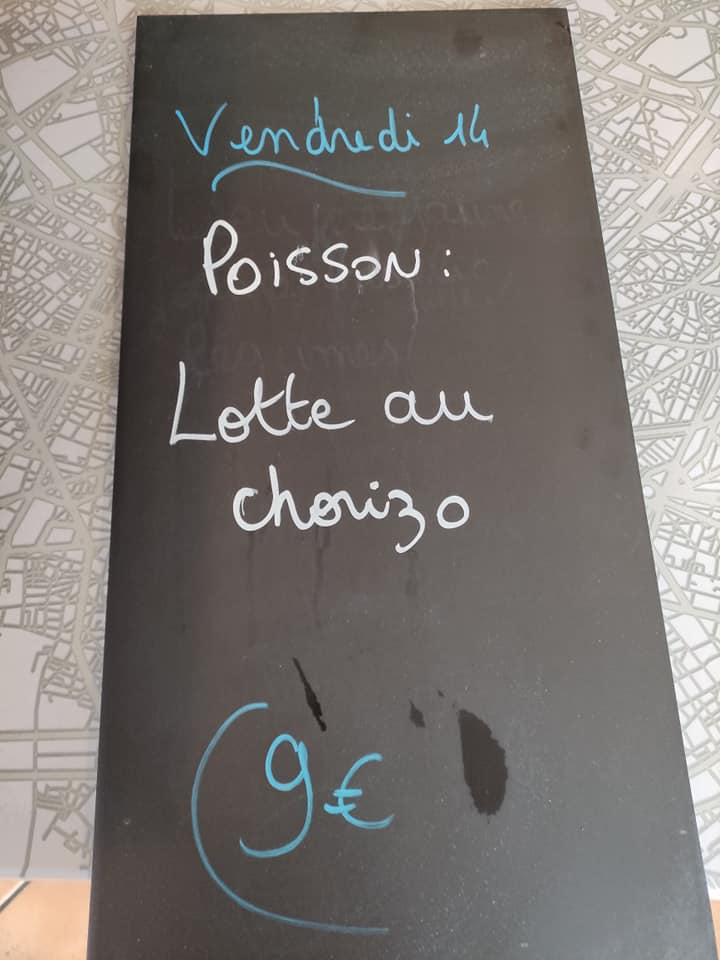 Vendredi 14
Poisson :
Lotte au
chorizo
9€